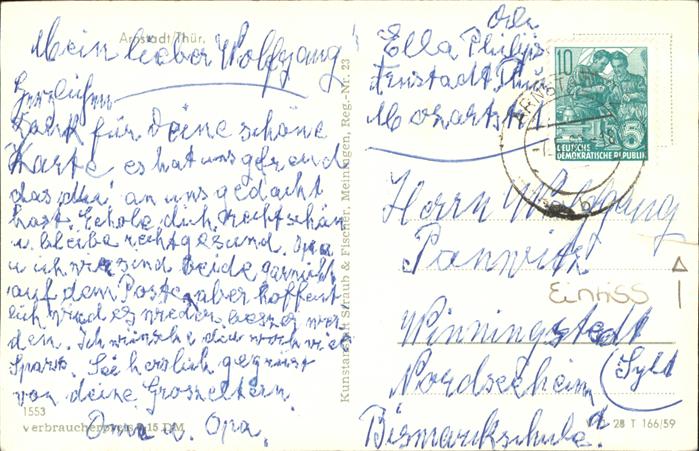 Arnstadt Thür.
Mein lieber Wolfgang!
Herzlichen
Dank für Deine schöne
Karte es hat uns gefreud
das du an uns gedacht
hast. Erhole dich recht schön
u. bleibe recht gesund. Opa
u. ich wir sind beide garnicht
auf dem Posten aber hoffent
lich wird es wieder besser wer
den. Ich wünsche dir noch viel
Spass. Sei herzlich gegrüsst
von deine Groszeltern
Oma u. Opa.
1553
verbraucherpreis 0,15 DM
Kunstanstalt Straub & Fischer, Meiningen, Reg.-Nr. 23
Ella
Arnstadt Thür
Mozartstr.
10
DEUTSCHE
DEMOKRATISCHE REPUBLIK
ARNSTADT
Herrn Wolfgang
Panwitz
Winningstedt
(Sylt
Nordseeheim
Bismarckschule.
V 28 T 166/59